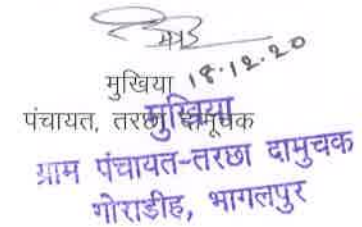 18.12.20
मुखिया
पंचायत, तरछा दामूचक
मुखिया
ग्राम पंचायत-तरछा दामुचक
गोराडीह, भागलपुर